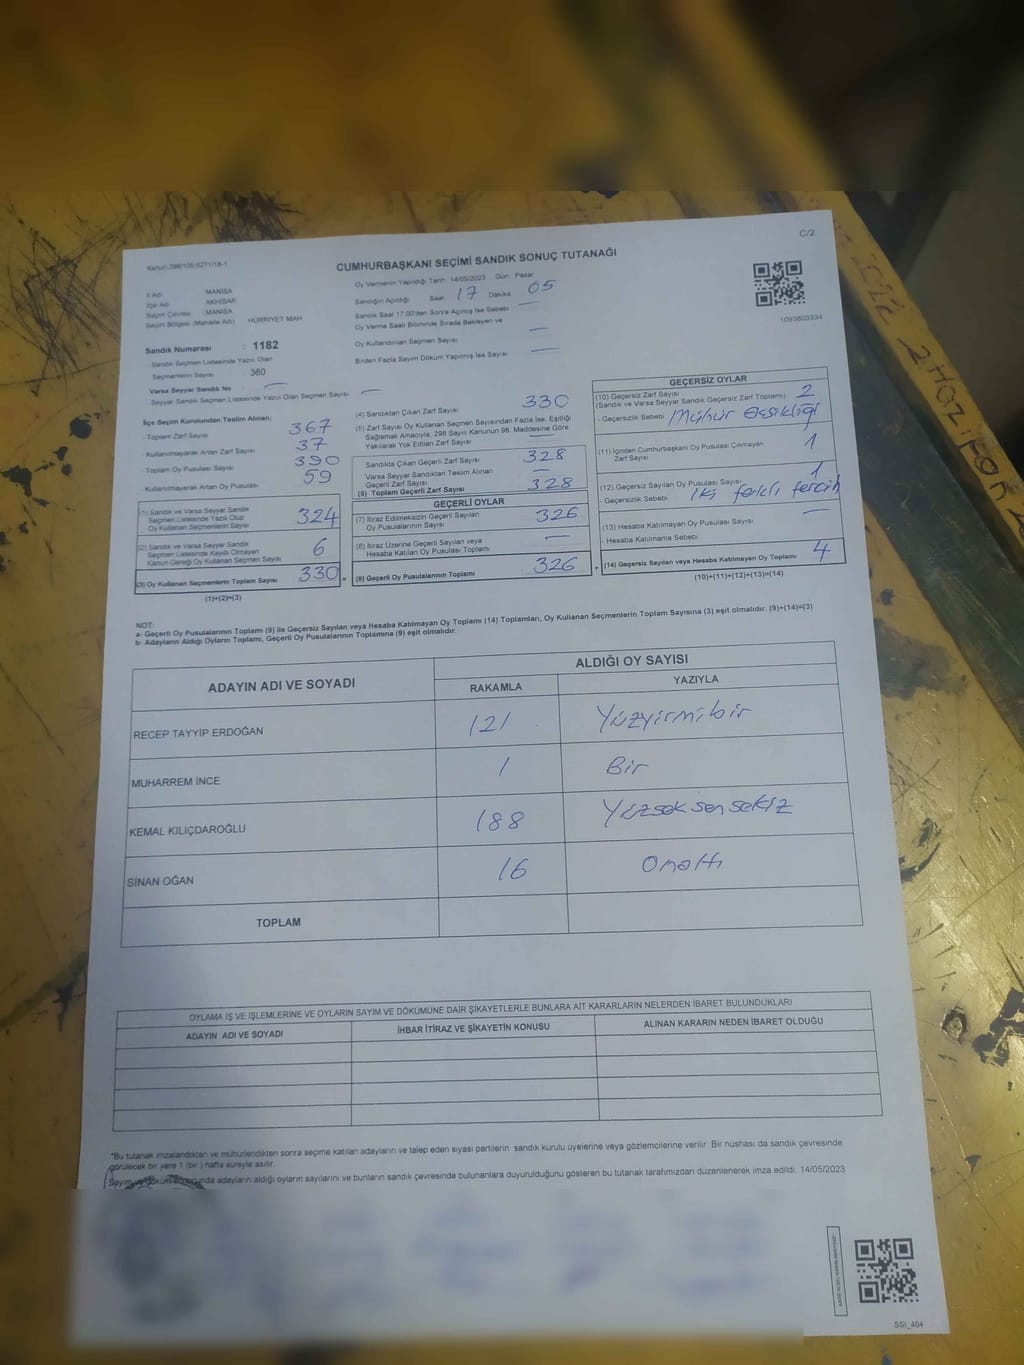 C/2
Kanun:298/105,6271/18-1
CUMHURBAŞKANI SEÇİMİ SANDIK SONUÇ TUTANAĞI
İl Adı : MANİSA
İlçe Adı : AKHİSAR
Seçim Çevresi : MANİSA
Seçim Bölgesi (Mahalle Adı) : HÜRRİYET MAH
Sandık Numarası : 1182
- Sandık Seçmen Listesinde Yazılı Olan
Seçmenlerin Sayısı : 360
Varsa Seyyar Sandık No : —
- Seyyar Sandık Seçmen Listesinde Yazılı Olan Seçmen Sayısı : —
Oy Vermenin Yapıldığı Tarih : 14/05/2023 Gün : Pazar
Sandığın Açıldığı Saat 17 Dakika 05
Sandık Saat 17:00'den Sonra Açılmış İse Sebebi —
Oy Verme Saati Bitiminde Sırada Bekleyen ve
Oy Kullandırılan Seçmen Sayısı —
Birden Fazla Sayım Döküm Yapılmış İse Sayısı —
1093803334
İlçe Seçim Kurulundan Teslim Alınan;
- Toplam Zarf Sayısı 367
- Kullanılmayarak Artan Zarf Sayısı 37
- Toplam Oy Pusulası Sayısı 390
- Kullanılmayarak Artan Oy Pusulası 59
(1) Sandık ve Varsa Seyyar Sandık
Seçmen Listesinde Yazılı Olup
Oy Kullanan Seçmenlerin Sayısı 324
(2) Sandık ve Varsa Seyyar Sandık
Seçmen Listesinde Kayıtlı Olmayan
Kanun Gereği Oy Kullanan Seçmen Sayısı 6
(3) Oy Kullanan Seçmenlerin Toplam Sayısı 330 =
(1)+(2)=(3)
(4) Sandıktan Çıkan Zarf Sayısı 330
(5) Zarf Sayısı Oy Kullanan Seçmen Sayısından Fazla İse, Eşitliği
Sağlamak Amacıyla, 298 Sayılı Kanunun 98. Maddesine Göre
Yakılarak Yok Edilen Zarf Sayısı —
Sandıkta Çıkan Geçerli Zarf Sayısı 328
Varsa Seyyar Sandıktan Teslim Alınan
Geçerli Zarf Sayısı —
(6) Toplam Geçerli Zarf Sayısı 328
GEÇERLİ OYLAR
(7) İtiraz Edilmeksizin Geçerli Sayılan
Oy Pusulalarının Sayısı 326
(8) İtiraz Üzerine Geçerli Sayılan veya
Hesaba Katılan Oy Pusulası Toplamı —
(9) Geçerli Oy Pusulalarının Toplamı 326 +
GEÇERSİZ OYLAR
(10) Geçersiz Zarf Sayısı 2
(Sandık ve Varsa Seyyar Sandık Geçersiz Zarf Toplamı)
- Geçersizlik Sebebi Mühür Eksikliği
(11) İçinden Cumhurbaşkanı Oy Pusulası Çıkmayan
Zarf Sayısı 1
(12) Geçersiz Sayılan Oy Pusulası Sayısı 1
- Geçersizlik Sebebi İki farklı tercih
(13) Hesaba Katılmayan Oy Pusulası Sayısı —
- Hesaba Katılmama Sebebi
(14) Geçersiz Sayılan veya Hesaba Katılmayan Oy Toplamı 4
(10)+(11)+(12)+(13)=(14)
NOT:
a- Geçerli Oy Pusulalarının Toplamı (9) ile Geçersiz Sayılan veya Hesaba Katılmayan Oy Toplamı (14) Toplamları, Oy Kullanan Seçmenlerin Toplam Sayısına (3) eşit olmalıdır. (9)+(14)=(3)
b- Adayların Aldığı Oyların Toplamı, Geçerli Oy Pusulalarının Toplamına (9) eşit olmalıdır.
ADAYIN ADI VE SOYADI
ALDIĞI OY SAYISI
RAKAMLA YAZIYLA
RECEP TAYYİP ERDOĞAN 121 Yüzyirmibir
MUHARREM İNCE 1 Bir
KEMAL KILIÇDAROĞLU 188 Yüzseksensekiz
SİNAN OĞAN 16 Onaltı
TOPLAM
OYLAMA İŞ VE İŞLEMLERİNE VE OYLARIN SAYIM VE DÖKÜMÜNE DAİR ŞİKAYETLERLE BUNLARA AİT KARARLARIN NELERDEN İBARET BULUNDUKLARI
ADAYIN ADI VE SOYADI İHBAR İTİRAZ VE ŞİKAYETİN KONUSU ALINAN KARARIN NEDEN İBARET OLDUĞU
*Bu tutanak imzalandıktan ve mühürlendikten sonra seçime katılan adayların ve talep eden siyasi partilerin sandık kurulu üyelerine veya gözlemcilerine verilir. Bir nüshası da sandık çevresinde
görülecek bir yere 1 (bir ) hafta süreyle asılır.
Sayım ve döküm sonunda adayların aldığı oyların sayılarını ve bunların sandık çevresinde bulunanlara duyurulduğunu gösteren bu tutanak tarafımızdan düzenlenerek imza edildi. 14/05/2023
SSİ_404